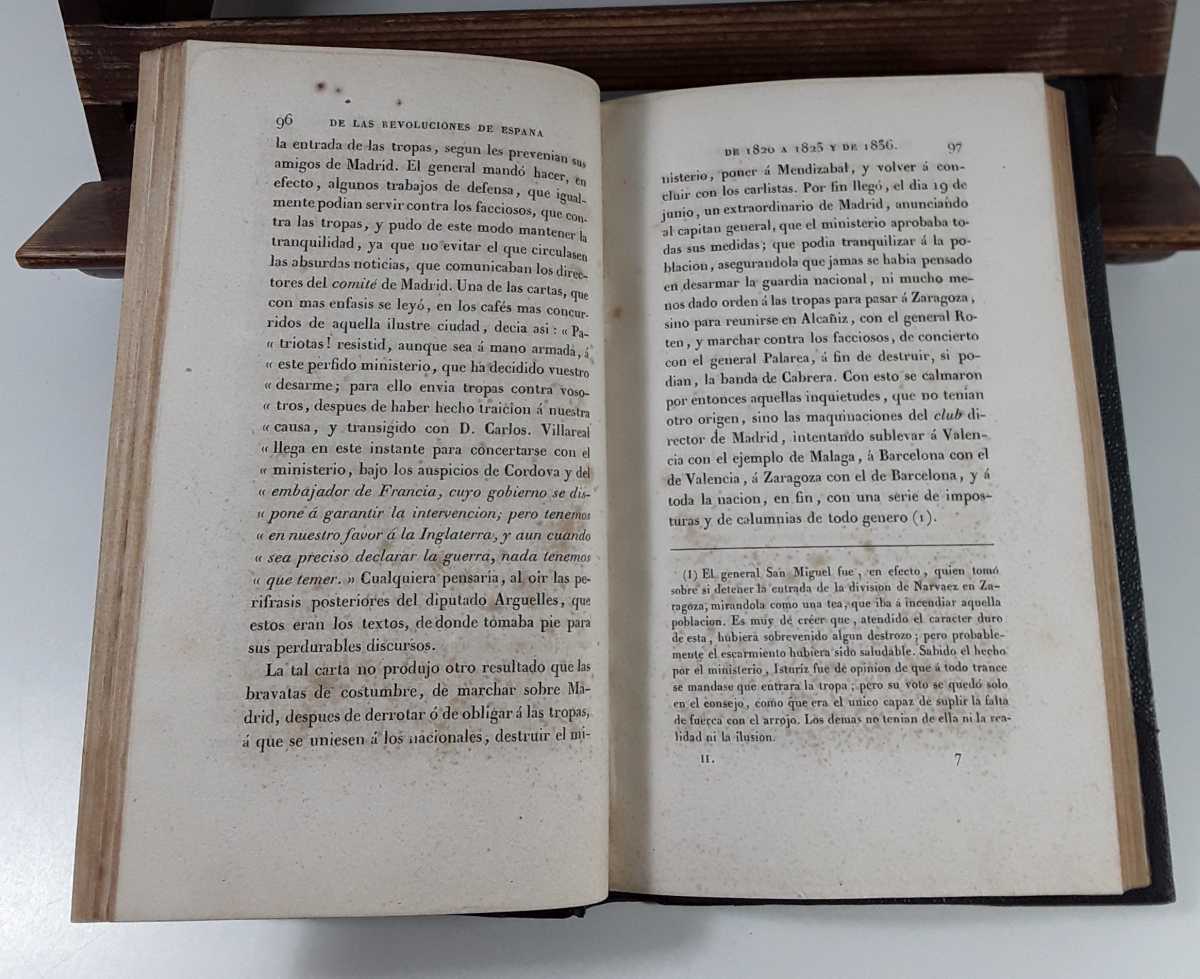 96 DE LAS REVOLUCIONES DE ESPANA
la entrada de las tropas, segun les prevenian sus
amigos de Madrid. El general mandó hacer, en
efecto, algunos trabajos de defensa, que igual-
mente podian servir contra los facciosos, que con-
tra las tropas, y pudo de este modo mantener la
tranquilidad, ya que no evitar el que circulasen
las absurdas noticias, que comunicaban los direc-
tores del comité de Madrid. Una de las cartas, que
con mas enfasis se leyó, en los cafés mas concur-
ridos de aquella ilustre ciudad, decia asi : « Pa-
« triotas! resistid, aunque sea á mano armada, á
« este perfido ministerio, que ha decidido vuestro
« desarme; para ello envia tropas contra voso-
« tros, despues de haber hecho traicion á nuestra
« causa, y transigido con D. Carlos. Villareal
« llega en este instante para concertarse con el
« ministerio, bajo los auspicios de Cordova y del
« embajador de Francia, cuyo gobierno se dis-
« pone á garantir la intervencion; pero tenemos
« en nuestro favor á la Inglaterra, y aun cuando
« sea preciso declarar la guerra, nada tenemos
« que temer. » Cualquiera pensaria, al oir las pe-
rifrasis posteriores del diputado Arguelles, que
estos eran los textos, de donde tomaba pie para
sus perdurables discursos.
La tal carta no produjo otro resultado que las
bravatas de costumbre, de marchar sobre Ma-
drid, despues de derrotar ó de obligar á las tropas,
á que se uniesen á los nacionales, destruir el mi-
DE 1820 A 1823 Y DE 1836. 97
nisterio, poner á Mendizabal, y volver á con-
cluir con los carlistas. Por fin llegó, el dia 19 de
junio, un extraordinario de Madrid, anunciando
al capitan general, que el ministerio aprobaba to-
das sus medidas; que podia tranquilizar á la po-
blacion, asegurandola que jamas se habia pensado
en desarmar la guardia nacional, ni mucho me-
nos dado orden á las tropas para pasar á Zaragoza,
sino para reunirse en Alcañiz, con el general Ro-
ten, y marchar contra los facciosos, de concierto
con el general Palarea, á fin de destruir, si po-
dian, la banda de Cabrera. Con esto se calmaron
por entonces aquellas inquietudes, que no tenian
otro origen, sino las maquinaciones del club di-
rector de Madrid, intentando sublevar á Valen-
cia con el ejemplo de Malaga, á Barcelona con el
de Valencia, á Zaragoza con el de Barcelona, y á
toda la nacion, en fin, con una serie de impos-
turas y de calumnias de todo genero (1).
(1) El general San Miguel fue, en efecto, quien tomó
sobre si detener la entrada de la division de Narvaez en Za-
ragoza, mirandola como una tea, que iba á incendiar aquella
poblacion. Es muy de creer que, atendido el caracter duro
de esta, hubiera sobrevenido algun destrozo; pero probable-
mente el escarmiento hubiera sido saludable. Sabido el hecho
por el ministerio, Isturiz fue de opinion de que á todo trance
se mandase que entrara la tropa; pero su voto se quedó solo
en el consejo, como que era el unico capaz de suplir la falta
de fuerza con el arrojo. Los demas no tenian de ella ni la rea-
lidad ni la ilusion.
II. 7